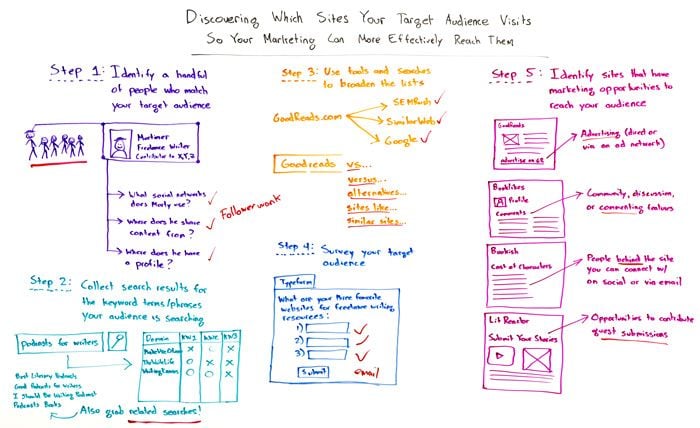 Discovering Which Sites Your Target Audience Visits
So Your Marketing Can More Effectively Reach Them
Step 1: Identify a handful
of people who match
your target audience
Mortimer
Freelance Writer
Contributor to X,Y,Z
What social networks
does Morty use?
Where does he share
content from?
Where does he have
a profile?
Followerwonk
Step 2: Collect search results for
the keyword terms/phrases
your audience is searching
podcasts for writers
Best Literary Podcasts
Good Podcasts for Writers
I Should Be Writing Podcast
Podcasts Books
Also grab related searches!
Domain KW1 KW2 KW3
MakeUseOf.com X O X
TheWriteLife O X X
WritingExcuses O O O
Step 3: Use tools and searches
to broaden the lists
GoodReads.com
SEMRush
SimilarWeb
Google
Goodreads vs...
versus...
alternatives...
sites like...
similar sites...
Step 4: Survey your target
audience
Typeform
What are your three favorite
websites for freelance writing
resources?
1)
2)
3)
Submit
email
Step 5: Identify sites that have
marketing opportunities to
reach your audience
GoodReads
Advertise on GR
Advertising (direct or
via an ad network)
Booklikes
Profile
Comments
Community, discussion,
or commenting features
Bookish
Cast of Characters
People behind the site
you can connect w/
on social or via email
Lit Reactor
Submit Your Stories
Opportunities to contribute
guest submissions